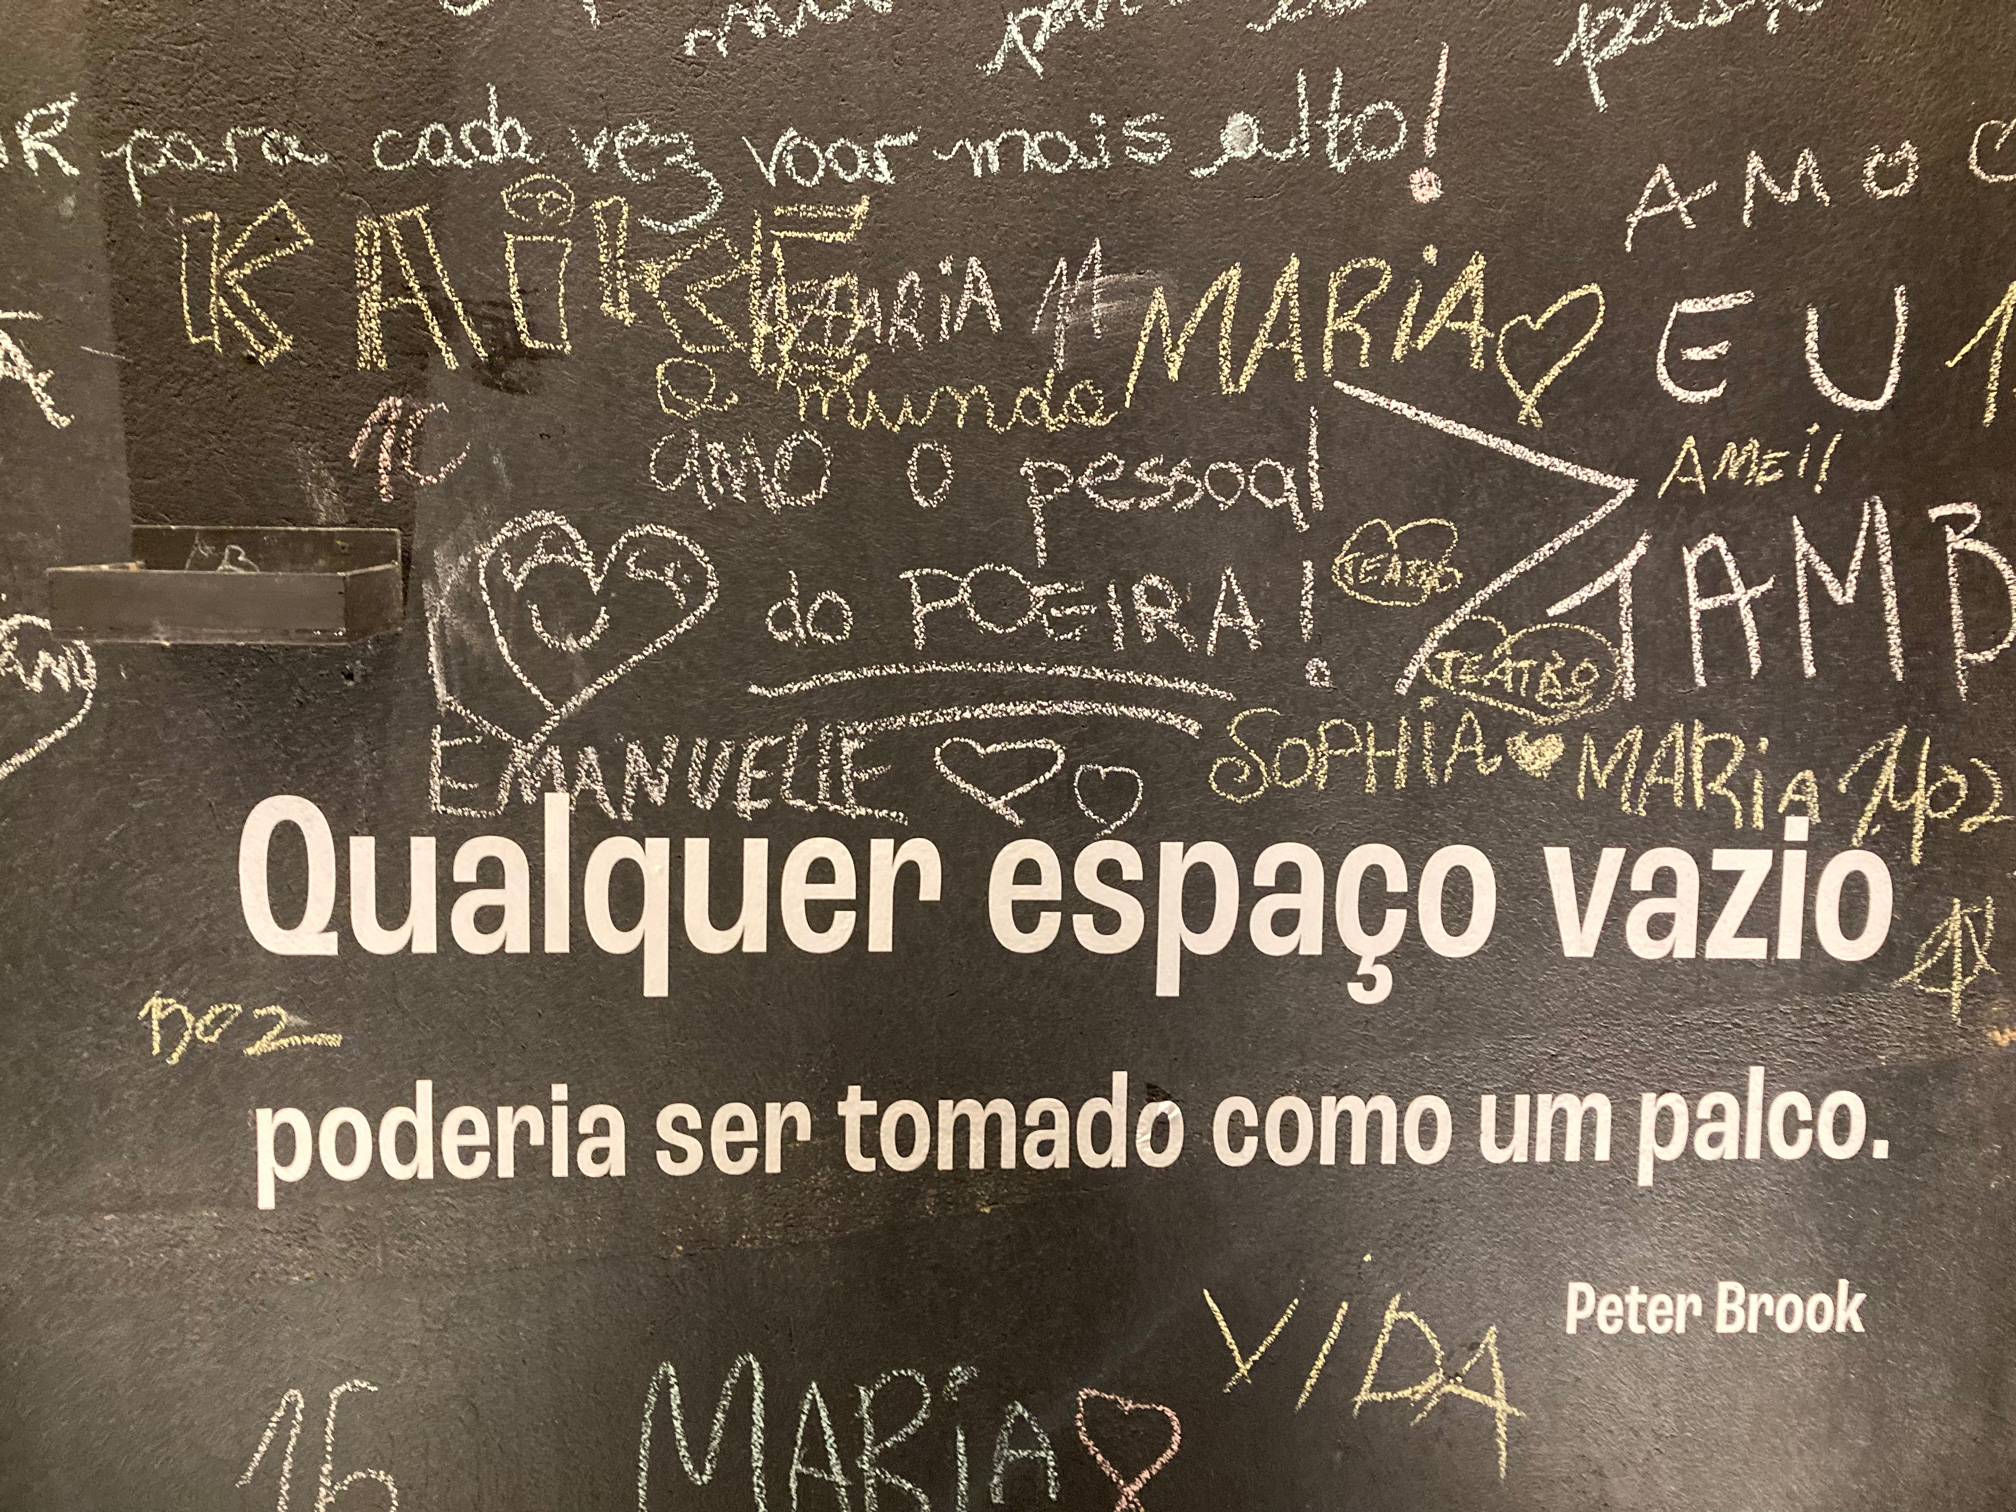 para cada vez voar mais alto!
AMO
KAiKE
MARiA
MARiA
EU
o mundo
AMEi!
amo o pessoal
TEATRO
TAMB
do POEIRA!
TEATRO
EMANUELLE
SOPHiA MARiA
Qualquer espaço vazio
poderia ser tomado como um palco.
Peter Brook
VIDA
MARiA
16